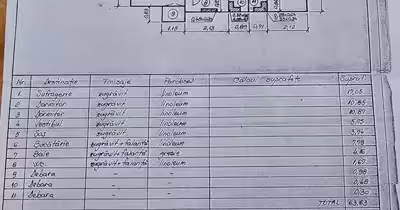 9
1,18 2,13 0,80 0,91 2,12
Nr. Destinație Finisaje Pardoseli Calcul suprafețe Supraf.
1 Sufragerie zugrăvit linoleum 17,05
2 Dormitor zugrăvit linoleum 10,85
3 Dormitor zugrăvit linoleum 10,87
4 Vestibul zugrăvit linoleum
5 Sas zugrăvit linoleum 3,94
6 Bucătărie zugrăvit+faianță linoleum 7,98
7 Baie zugrăvit+faianță gresie
8 WC zugrăvit+faianță linoleum
9 Debara - - 0,98
10 Debara - - 0,68
11 Debara - - 0,30
TOTAL 63,83